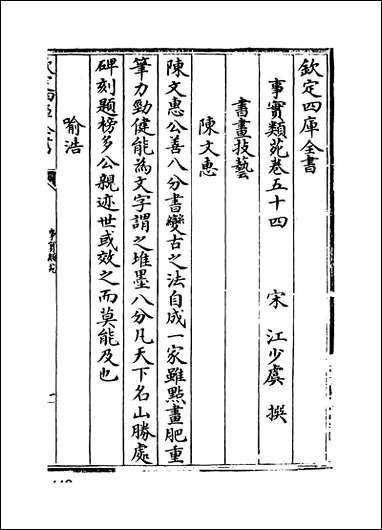 欽定四庫全書
事實類苑卷五十四
宋 江少虞 撰
書畫技藝
陳文惠
陳文惠公善八分書變古之法自成一家雖點畫肥重
筆力勁健能為文字謂之堆墨八分凡天下名山勝處
碑刻題榜多公親迹世或效之而莫能及也
喻浩
事實類苑